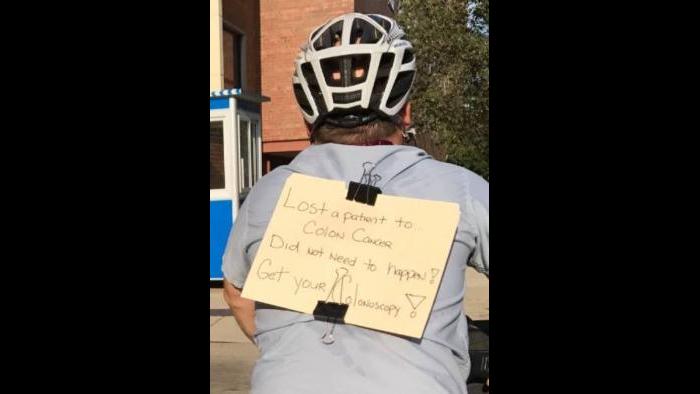 Lost a patient to
Colon Cancer
Did not need to happen!
Get your Colonoscopy!